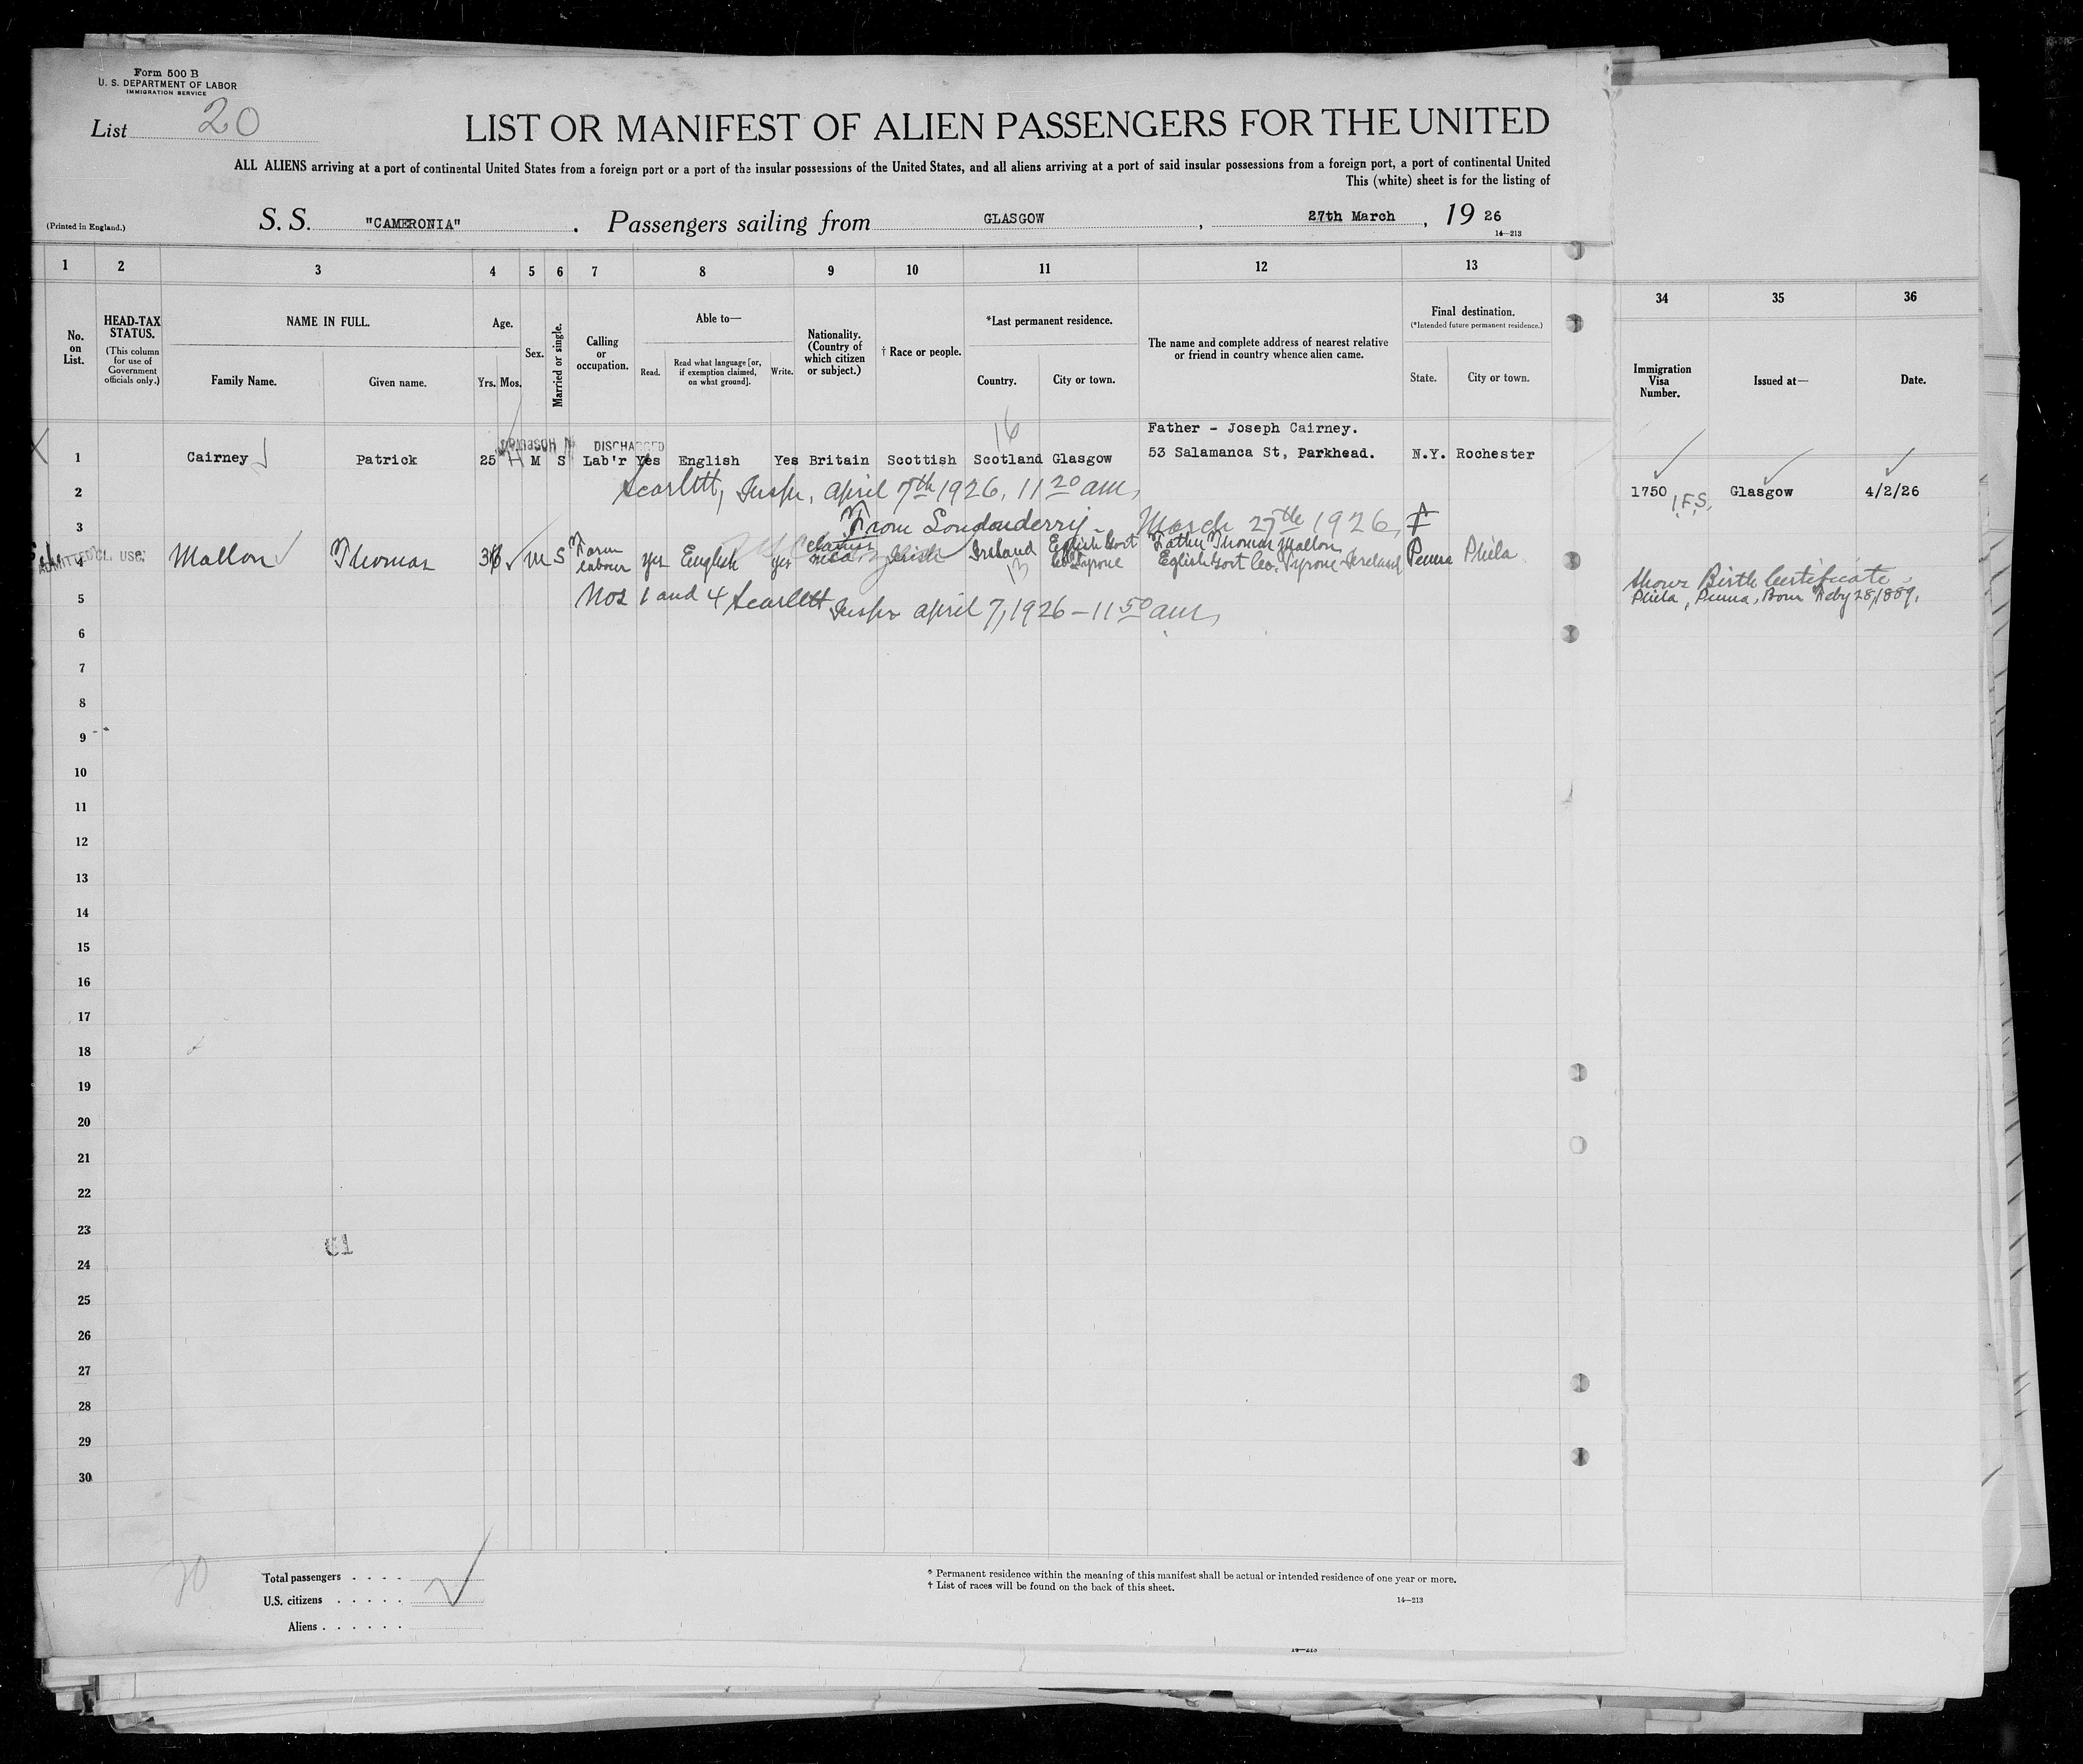 Form 500 B
U. S. DEPARTMENT OF LABOR
IMMIGRATION SERVICE
List 20
LIST OR MANIFEST OF ALIEN PASSENGERS FOR THE UNITED
ALL ALIENS arriving at a port of continental United States from a foreign port or a port of the insular possessions of the United States, and all aliens arriving at a port of said insular possessions from a foreign port, a port of continental United
This (white) sheet is for the listing of
(Printed in England.)
S. S. "CAMERONIA" . Passengers sailing from GLASGOW , 27th March , 19 26
14—213
1 2 3 4 5 6 7 8 9 10 11 12 13
34 35 36
No. on List.
HEAD-TAX STATUS.
(This column for use of Government officials only.)
NAME IN FULL.
Family Name.
Given name.
Age.
Yrs. Mos.
Sex.
Married or single.
Calling or occupation.
Able to—
Read.
Read what language [or, if exemption claimed, on what ground].
Write.
Nationality. (Country of which citizen or subject.)
† Race or people.
*Last permanent residence.
Country.
City or town.
The name and complete address of nearest relative or friend in country whence alien came.
Final destination.
(*Intended future permanent residence.)
State.
City or town.
Immigration Visa Number.
Issued at—
Date.
DISCHARGED
16
Father - Joseph Cairney.
1 Cairney Patrick 25 M S Lab'r Yes English Yes Britain Scottish Scotland Glasgow 53 Salamanca St, Parkhead. N.Y. Rochester
1750 I.F.S. Glasgow 4/2/26
2 Scarlett, Inspr, April 7th 1926, 11 20 am,
3 From Londonderry - March 27th 1926,
4 ADMITTED Mallon Thomas M S Farm labour yes English yes Irish Ireland Eglish Gort Co Tyrone Father Thomas Mallon Eglish Gort Co. Tyrone Ireland Penna Phila
13
Shows Birth Certificate
Phila, Penna, Born Feby 28, 1889.
5 Nos 1 and 4 Scarlett Inspr April 7, 1926 – 11 50 am,
6
7
8
9
10
11
12
13
14
15
16
17
18
19
20
21
22
23
61
24
25
26
27
28
29
30
20
Total passengers . . . .
U.S. citizens . . . . .
Aliens . . . . . .
* Permanent residence within the meaning of this manifest shall be actual or intended residence of one year or more.
† List of races will be found on the back of this sheet.
14—213
14—213